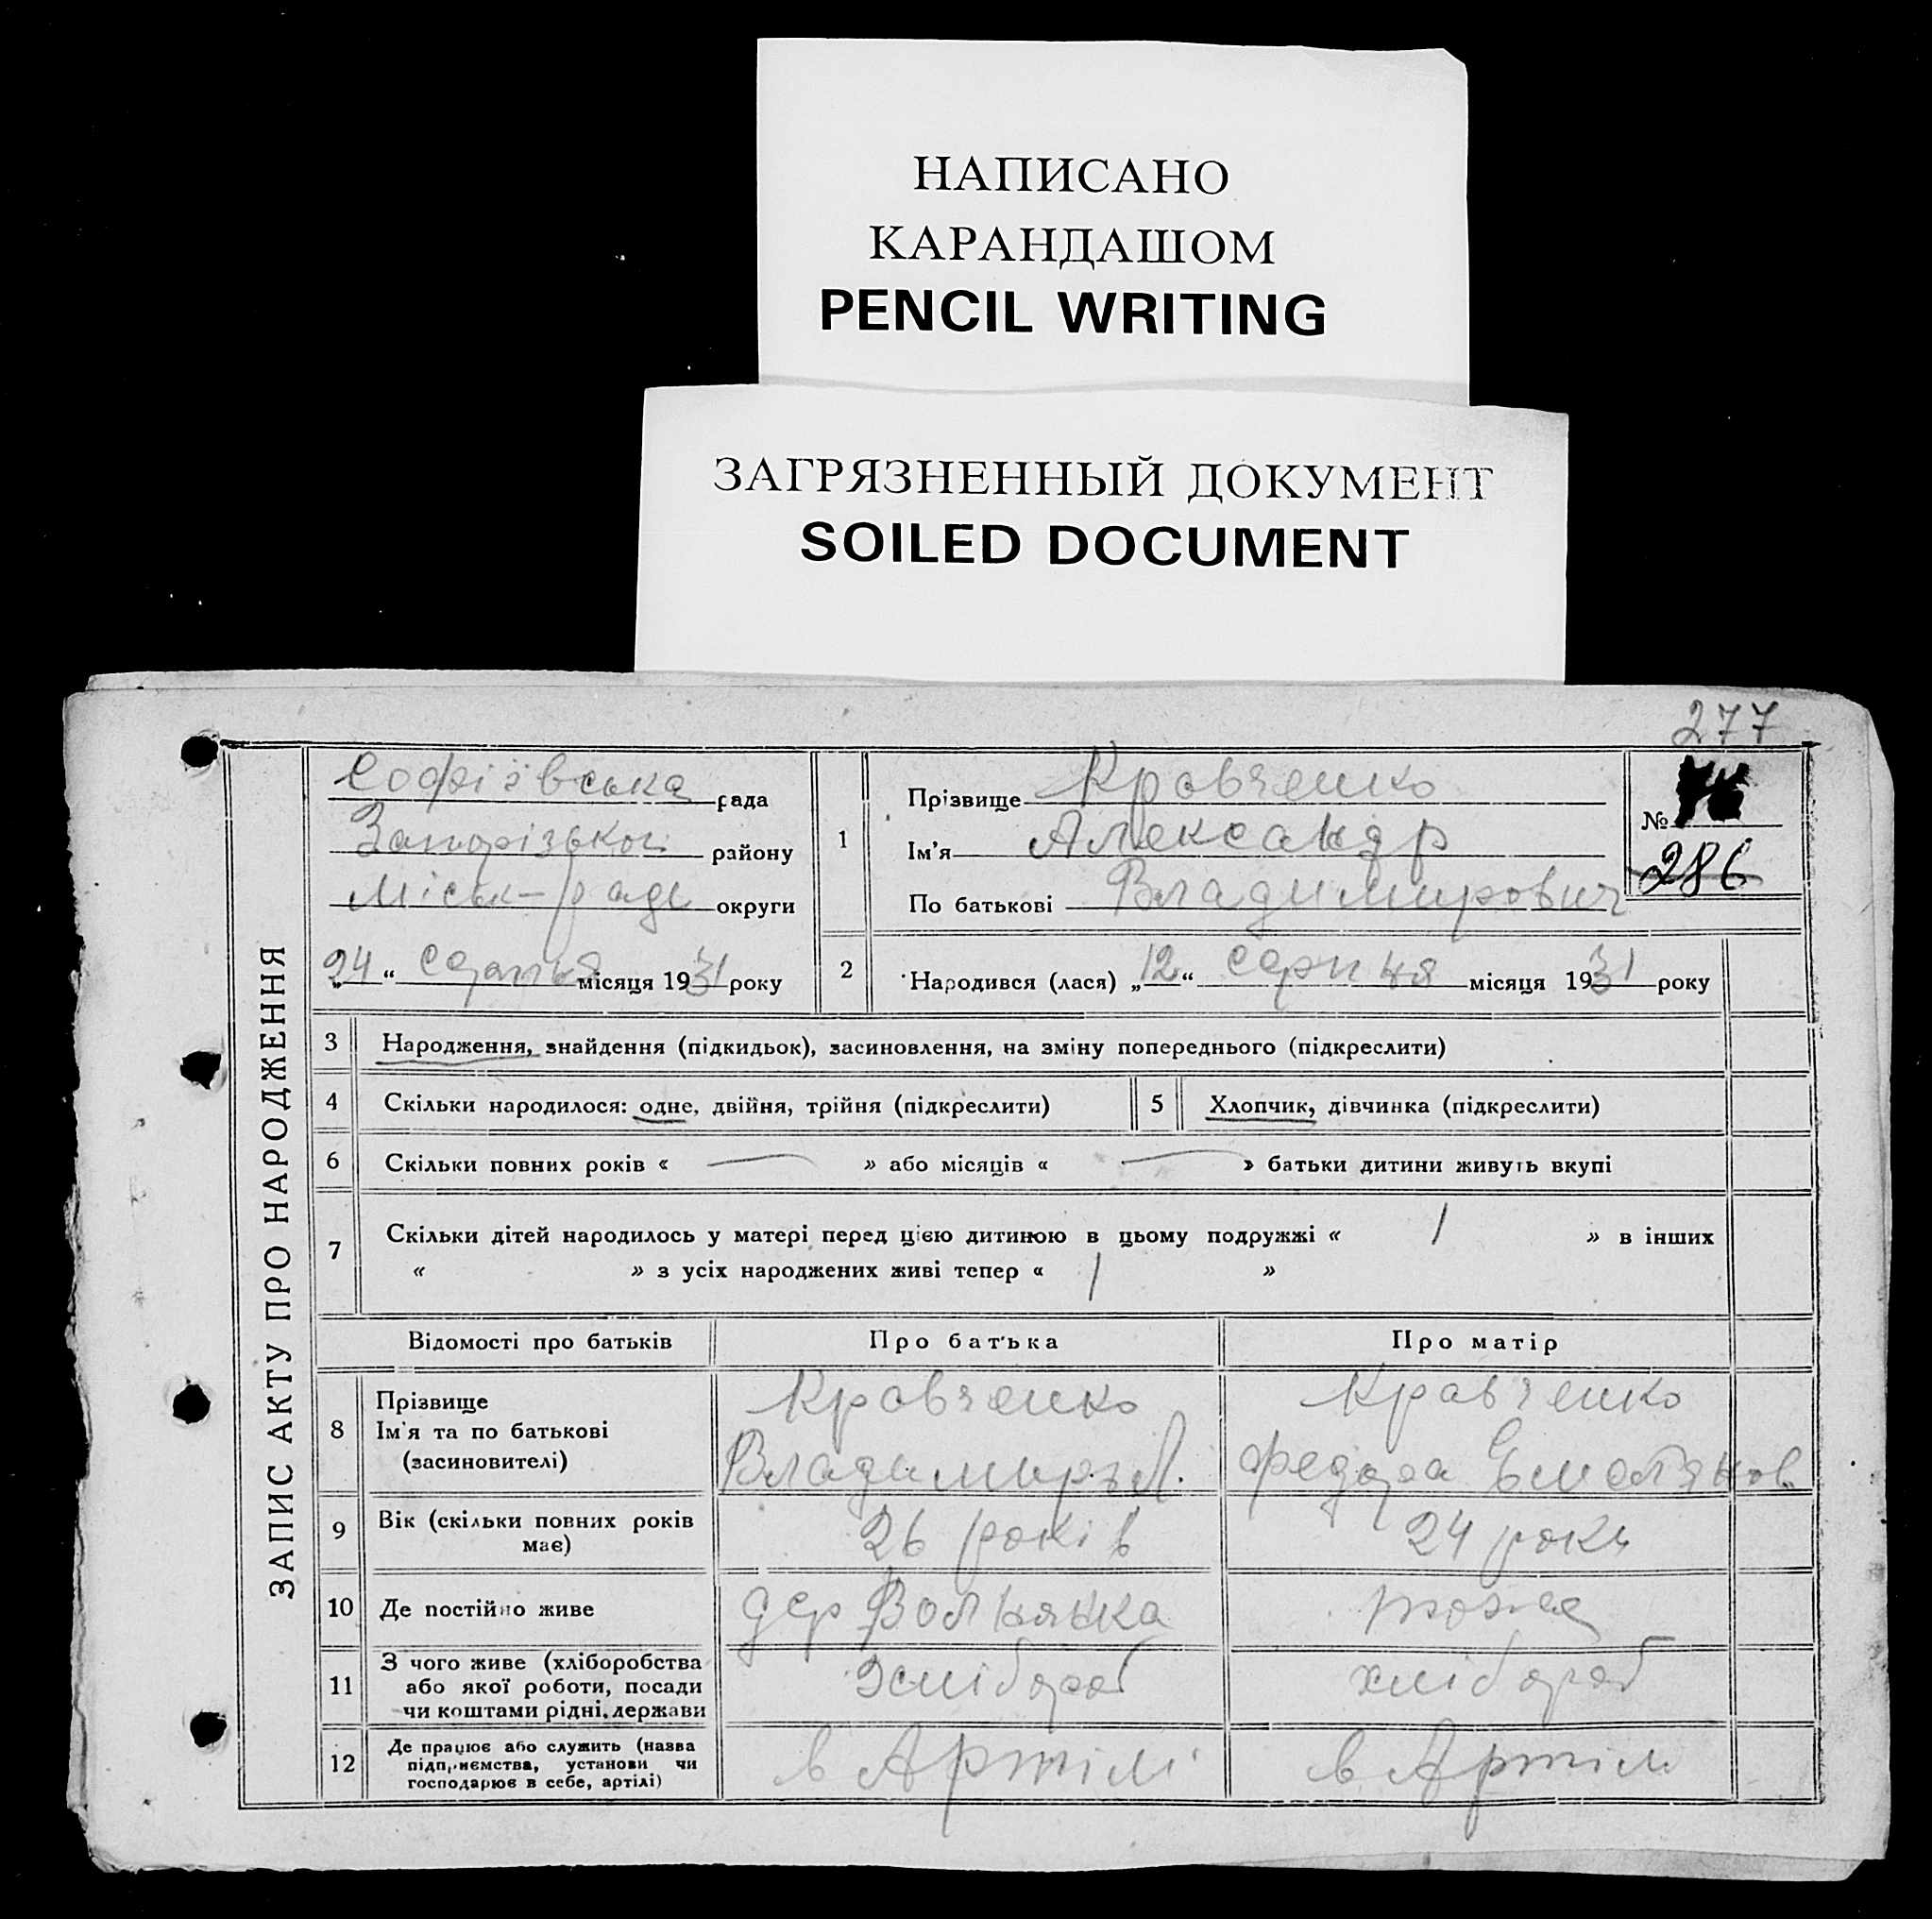 НАПИСАНО
КАРАНДАШОМ
PENCIL WRITING
ЗАГРЯЗНЕННЫЙ ДОКУМЕНТ
SOILED DOCUMENT
277
ЗАПИС АКТУ ПРО НАРОДЖЕННЯ
Софіївська рада
Запорізької району
Міськ-ради округи
„24“ Серпня місяця 1931 року
1
Прізвище Кравченко
Ім'я Александр
По батькові Владимирович
№
286
2 Народився (лася) „12“ Серпня місяця 1931 року
3 Народження, знайдення (підкидьок), засиновлення, на зміну попереднього (підкреслити)
4 Скільки народилося: одне, двійня, трійня (підкреслити) 5 Хлопчик, дівчинка (підкреслити)
6 Скільки повних років « — » або місяців « — » батьки дитини живуть вкупі
7 Скільки дітей народилось у матері перед цією дитиною в цьому подружжі « 1 » в інших
« » з усіх народжених живі тепер « 1 »
Відомості про батьків Про батька Про матір
8 Прізвище Кравченко Кравченко
Ім'я та по батькові
(засиновителі) Владимир Л. Федора Емельянов
9 Вік (скільки повних років
має) 26 років 24 роки
10 Де постійно живе дер Вольнянка тоже
11 З чого живе (хліборобства
або якої роботи, посади хлібороб хлібороб
чи коштами рідні, держави
12 Де працює або служить (назва
підприємства, установи чи в Артілі в Артілі
господарює в себе, артілі)